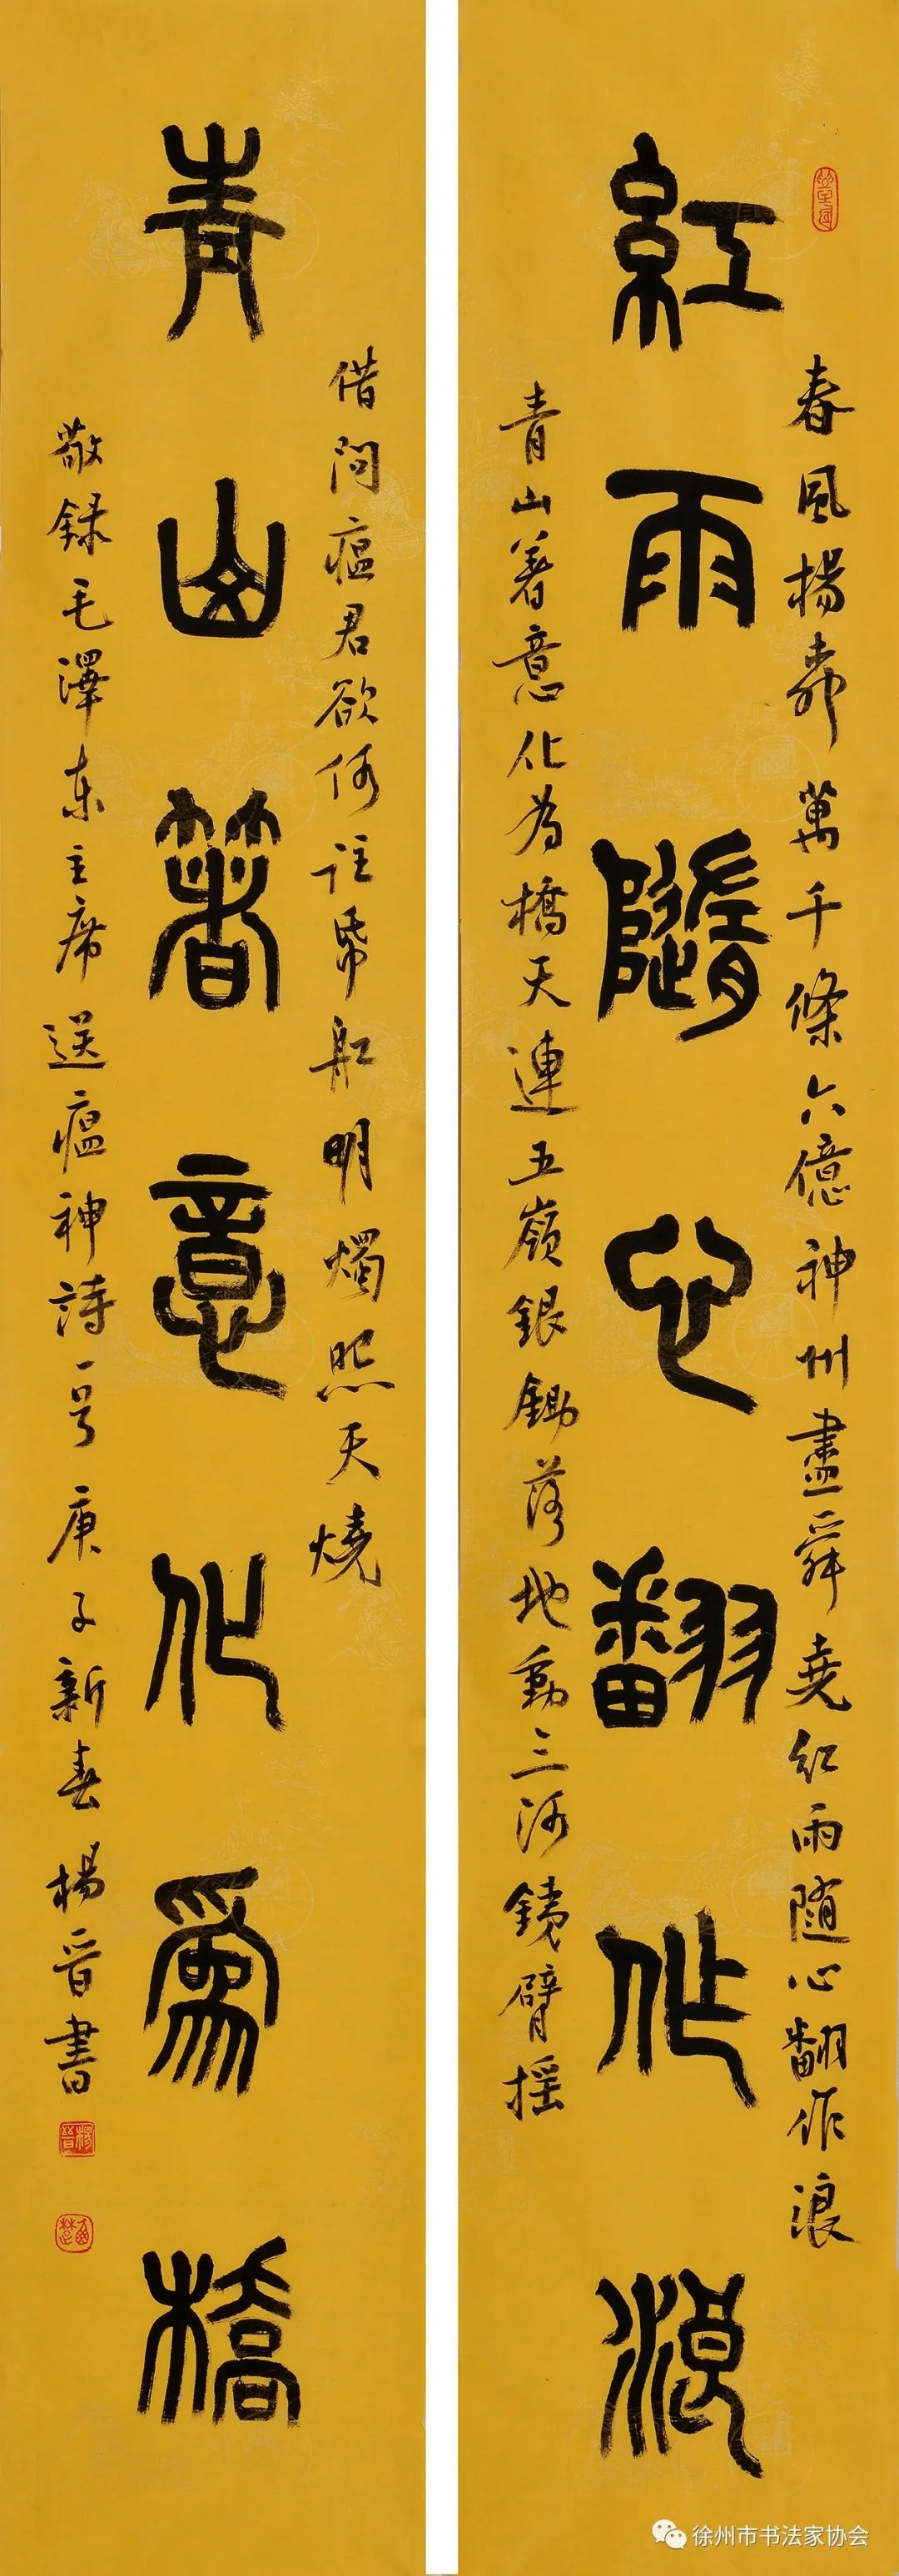 紅雨隨心翻作浪
春風楊柳萬千條六億神州盡舜堯紅雨随心翻作浪
青山著意化為橋天連五嶺銀鋤落地動三河鐵臂摇
青山箸意化爲橋
借問瘟君欲何往紙船明燭照天燒
敬録毛澤东主席送瘟神詩一首庚子新春楊晋書
楊晋
徐州市书法家协会